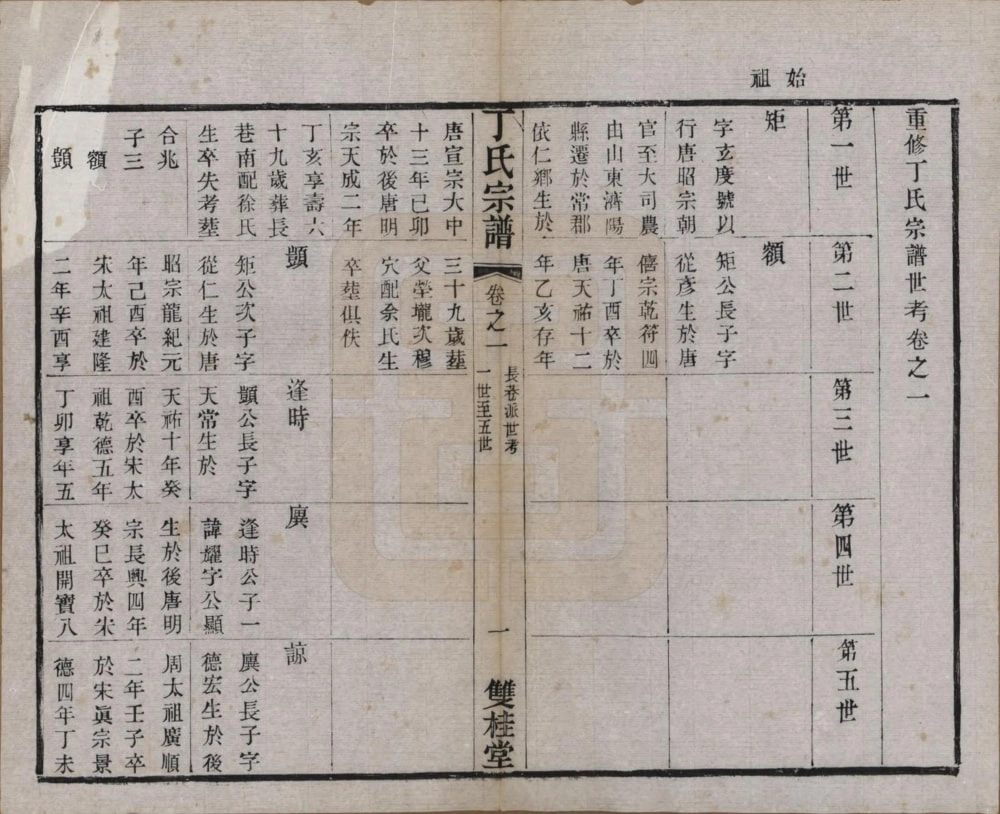 始祖
重修丁氏宗譜世考卷之一
第一世
矩
字玄度號以
行唐昭宗朝
官至大司農
由山東濟陽
縣遷於常郡
依仁鄉生於
唐宣宗大中
十三年已卯
卒於後唐明
宗天成二年
丁亥享壽六
十九歲葬長
巷南配徐氏
生卒失考塟
合兆
子三
額
顗
第二世
額
矩公長子字
從彥生於唐
僖宗乾符四
年丁酉卒於
唐天祐十二
年乙亥存年
三十九歲塟
父塋壠次穆
穴配余氏生
卒塟俱佚
顗
矩公次子字
從仁生於唐
昭宗龍紀元
年己酉卒於
宋太祖建隆
二年辛酉享
第三世
逢時
顗公長子字
天常生於
天祐十年癸
酉卒於宋太
祖乾德五年
丁卯享年五
第四世
廙
逢時公子一
諱燿字公顯
生於後唐明
宗長興四年
癸巳卒於宋
太祖開寶八
第五世
諒
廙公長子字
德宏生於後
周太祖廣順
二年壬子卒
於宋眞宗景
德四年丁未
丁氏宗譜
卷之一
長巷派世考
一世至五世
一
雙桂堂